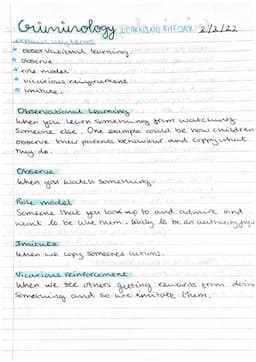 Criminology LEARNING THEORY 2/2/22
explain key terms
* observational learning
* observe
* role model
* vicarious reinforcement
* imitate.
Observational Learning
When you learn something from watching
someone else. One example could be how children
observe their parents behaviour and copy what
they do.
Observe
When you watch something.
Role model
Someone that you look up to and admire and
want to be like them. Likely to be an authority figure
Imitate
When we copy someones actions.
Vicarious reinforcement
When we see others getting rewards from doing
something and so we imitate them.